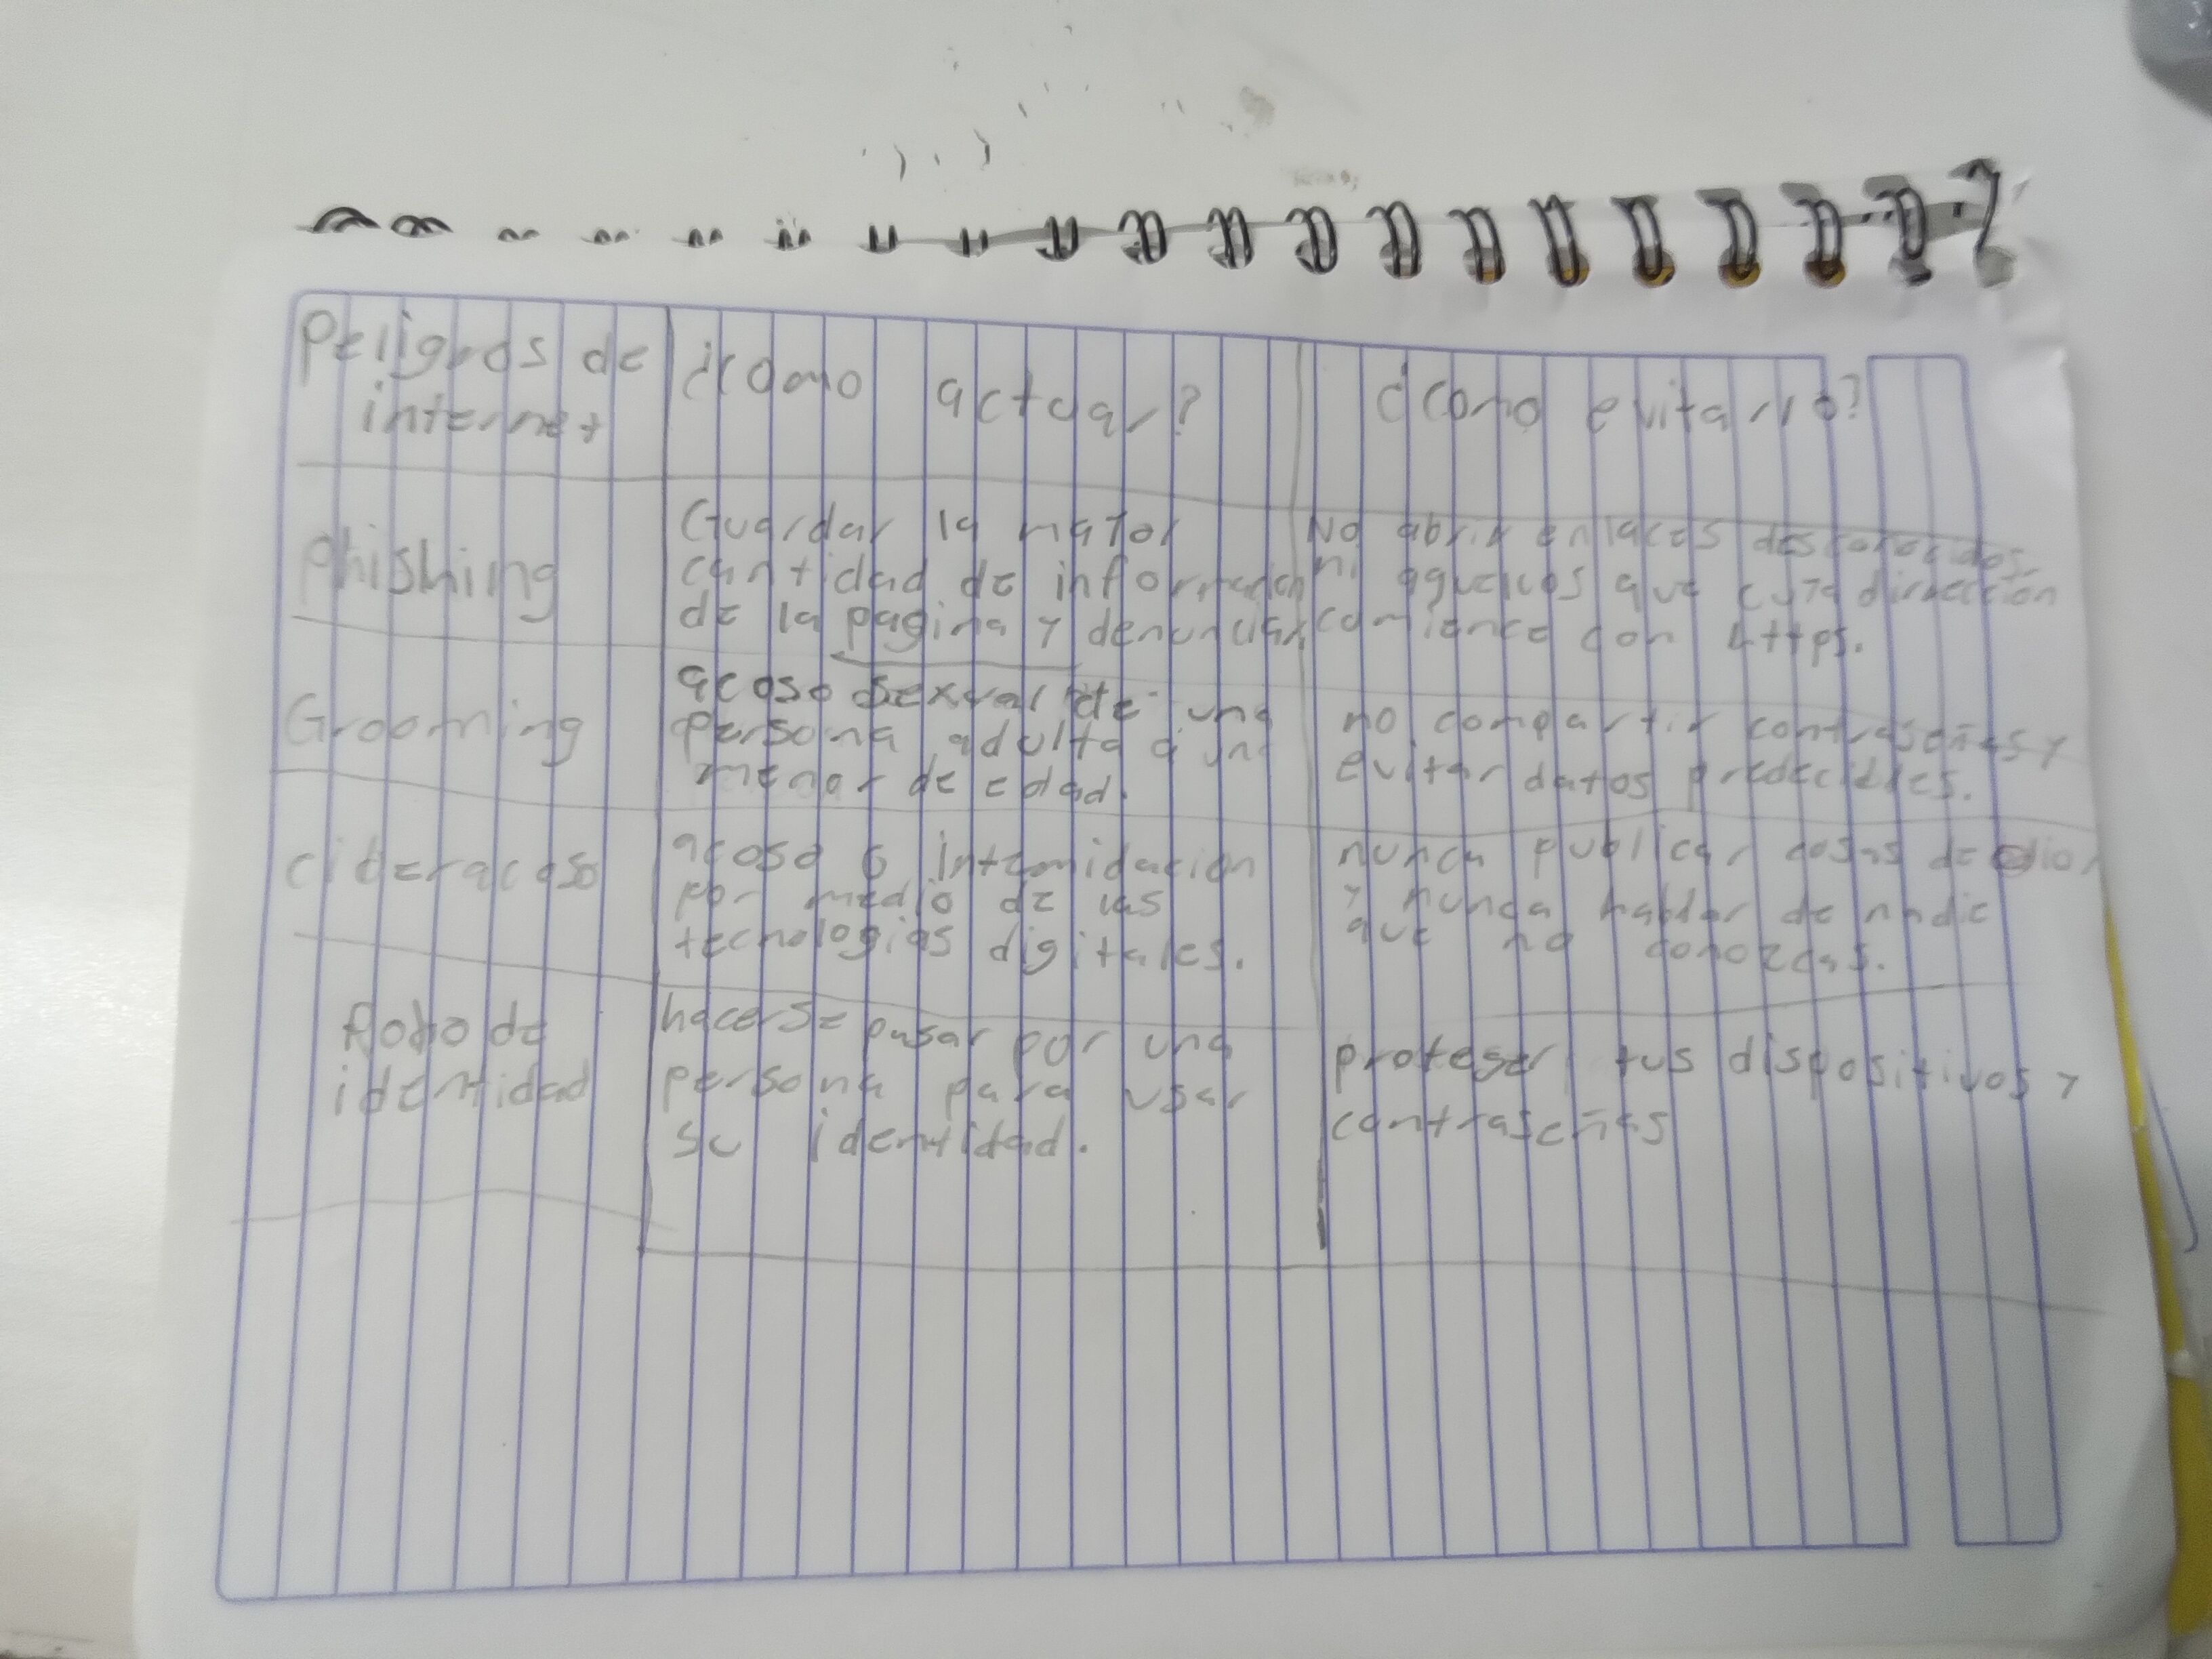 Peligros de
internet
¿como actuar?
¿como evitarlo?
Phishing
Guardar la mayor
cantidad de informacion
de la pagina y denunciar
No abrir enlaces desconocidos
ni aquellos que cuya dirección
comience con https.
Grooming
acoso sexual de una
persona adulta a una
menor de edad.
no compartir contraseñas y
evitar datos predecibles.
ciberacoso
acoso o intemidacion
por medio de las
tecnologias digitales.
nunca publicar cosas de odio
y nunca hablar de nadie
que no conozcas.
Robo de
identidad
hacerse pasar por una
persona para usar
su identidad.
proteger tus dispositivos y
contraseñas